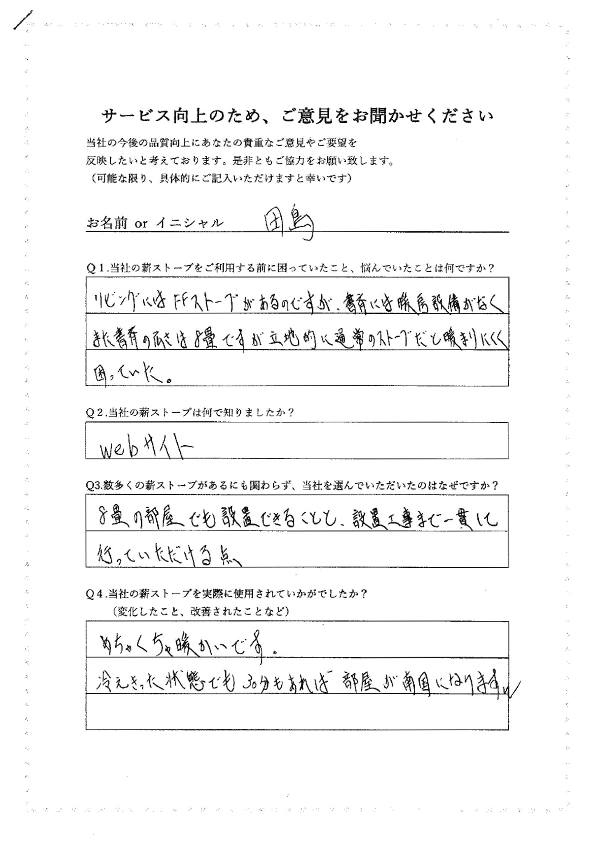 サービス向上のため、ご意見をお聞かせください
当社の今後の品質向上にあなたの貴重なご意見やご要望を
反映したいと考えております。是非ともご協力をお願い致します。
（可能な限り、具体的にご記入いただけますと幸いです）
お名前 or イニシャル 田島
Q1.当社の薪ストーブをご利用する前に困っていたこと、悩んでいたことは何ですか？
リビングにはFFストーブがあるのですが、書斎には暖房設備がなく
また書斎の広さは8畳ですが立地的に通常のストーブだと暖まりにくく
困っていた。
Q2.当社の薪ストーブは何で知りましたか？
webサイト
Q3.数多くの薪ストーブがあるにも関わらず、当社を選んでいただいたのはなぜですか？
8畳の部屋でも設置できることと、設置工事まで一貫して
行っていただける点
Q4.当社の薪ストーブを実際に使用されていかがでしたか？
（変化したこと、改善されたことなど）
めちゃくちゃ暖かいです。
冷えきった状態でも30分もあれば部屋が南国になりますw